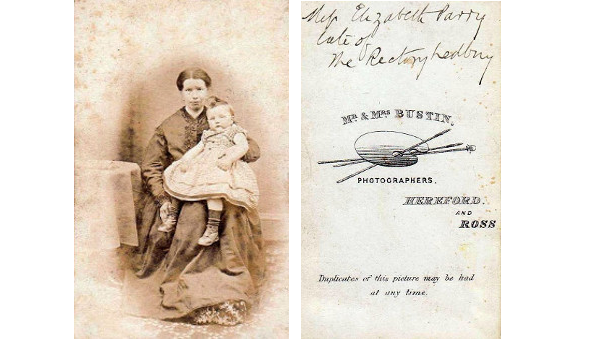 Miss Elizabeth Parry
late of
The Rectory Ledbury
Mr. & Mrs. BUSTIN,
PHOTOGRAPHERS.
HEREFORD.
AND
ROSS
Duplicates of this picture may be had
at any time.